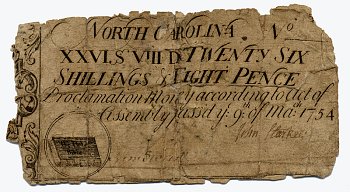 NORTH CAROLINA. No
XXVI.Ss VIII D. TWENTY SIX
SHILLINGS & EIGHT PENCE
Proclamation Money according to Act of
Assembly pass'd ye. 9th of Mach 1754
John